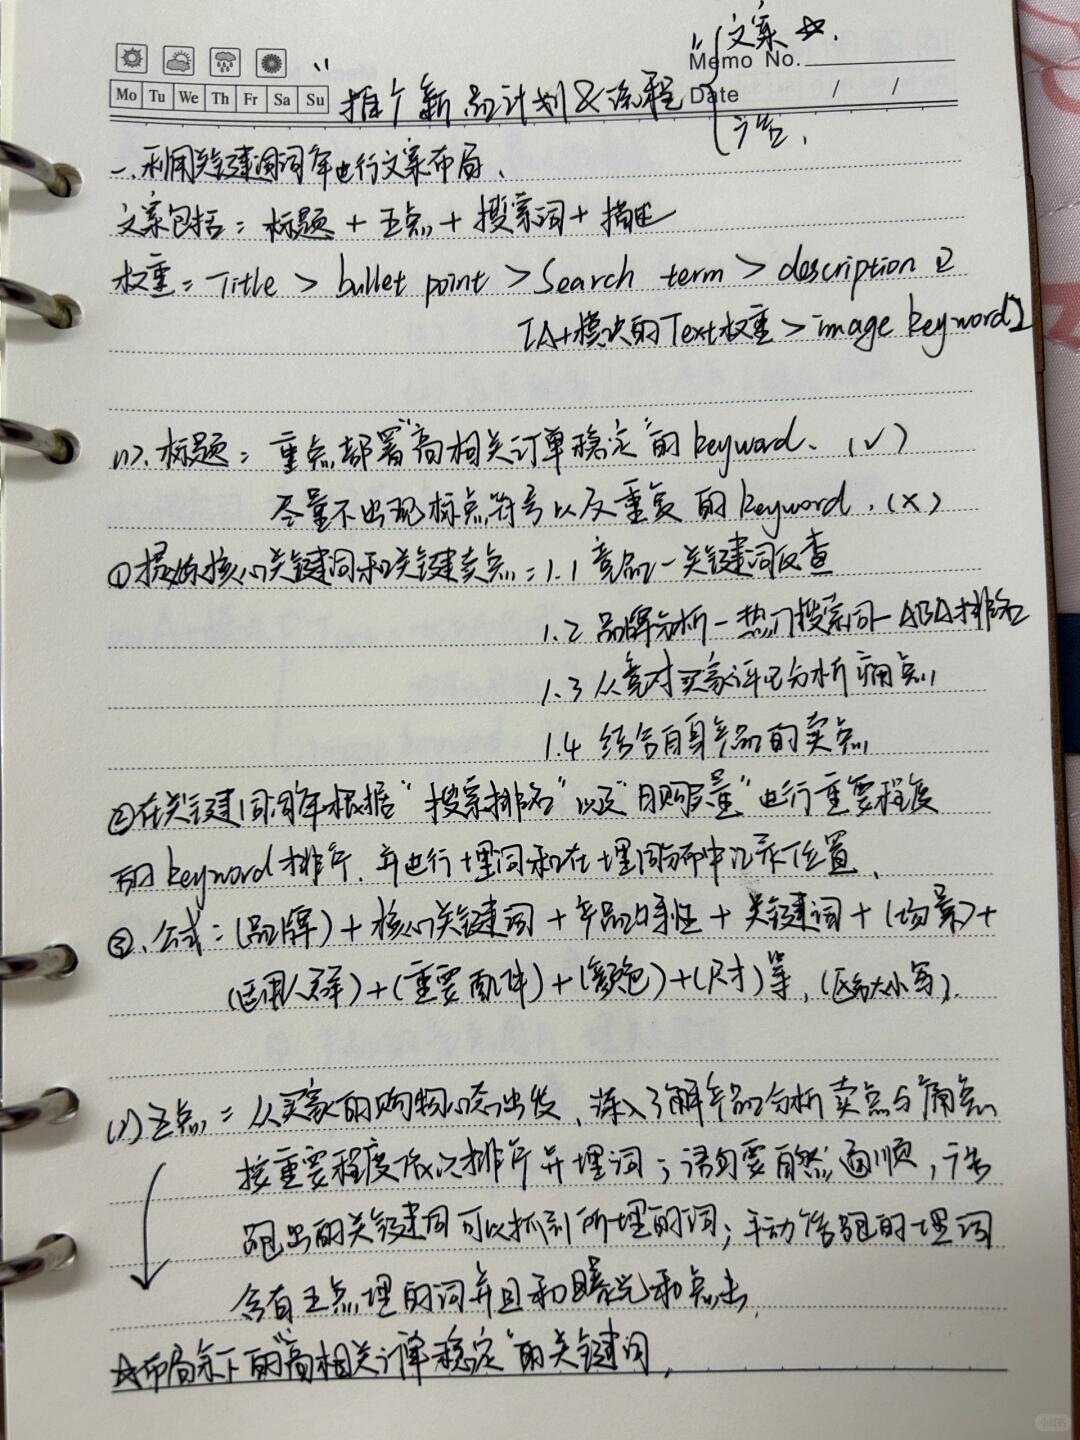 1、文案☆.
Memo No.
Mo Tu We Th Fr Sa Su
" 推个新品计划&流程
Date / /
广告.
一、利用关键词词库进行文案布局、
文案包括：标题 + 五点 + 搜索词 + 描述
权重：Title > bullet point > Search term > description
[A+模块的Text权重 > image keyword]
(1)、标题：重点部署"高相关订单稳定"的keyword、(✓)
尽量不出现标点符号以及重复的keyword.(×)
①提炼核心关键词和关键卖点：1.1 竞品—关键词反查
1.2 品牌分析—热门搜索词—ABA排名
1.3 从竞对买家评论分析痛点
1.4 结合自身产品的卖点
②在关键词词库根据"搜索排名"以及"月购买量"进行重要程度
的keyword排序.并进行埋词和在埋词分布中记录位置、
③、公式：(品牌)+核心关键词+产品特性+关键词+(场景)+
(适用人群)+(重要配件)+(颜色)+(尺寸)等,(区分大小写).
(2)五点：从买家的购物心态出发、深入了解产品分析卖点与痛点
按重要程度依次排序并埋词；语句要自然通顺，广告
跑出的关键词可以抓到所埋的词；手动能跑的埋词
含有五点埋的词并且有曝光和点击.
☆布局余下的"高相关订单稳定"的关键词.
小红书